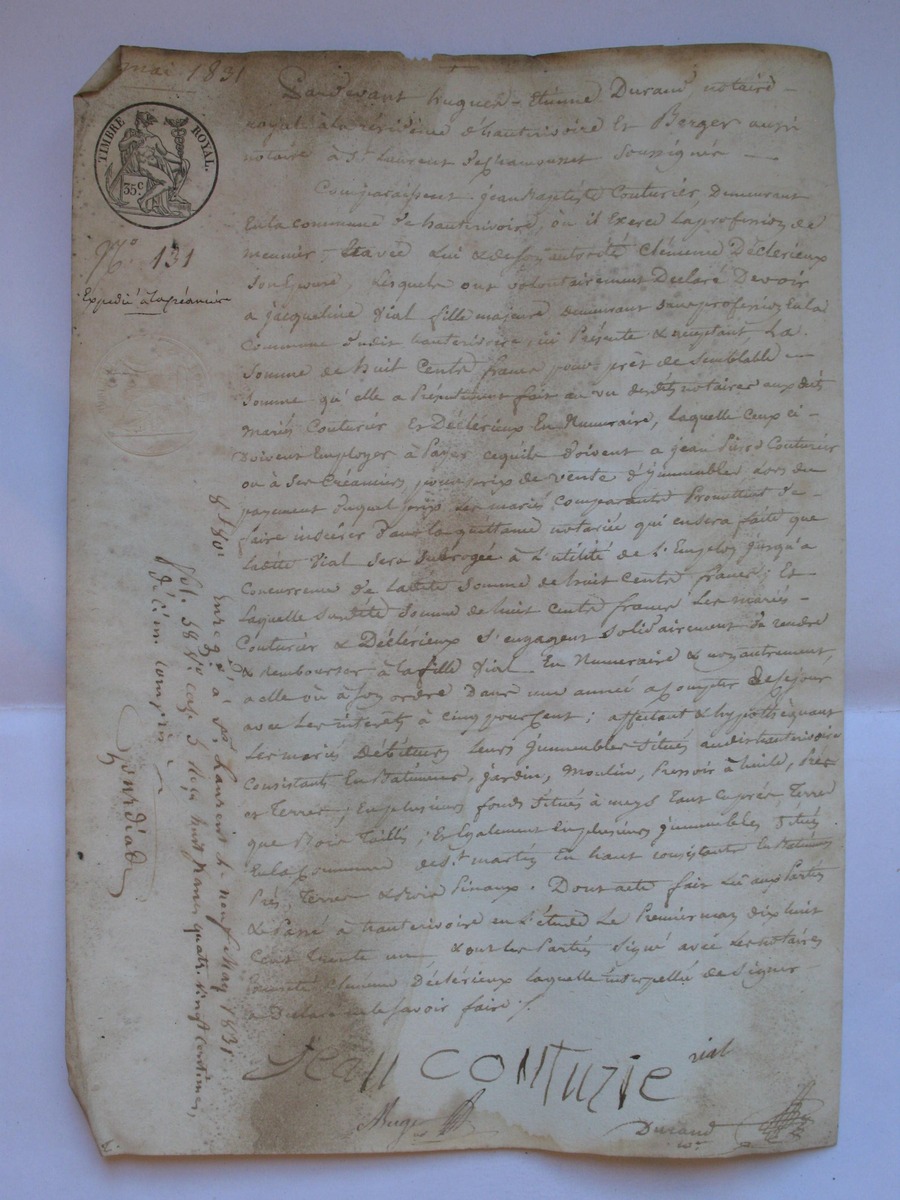 mai 1831
TIMBRE ROYAL.
35c
No. 131
Expédié à la créancière
Pardevant hugues-Etienne Durand notaire
royal à la résidence d'hauterivoire Et Berger aussi
notaire à St. Laurent de chamousset soussignés
Comparaissent jean Baptiste Couturier, Demeurant
En la commune d'hauterivoire, où il Exerce la profession de
meunier, Et avec lui & de son autorité Clémence Déclerieux
Son Epouse, Lesquels ont volontairement Déclaré Devoir
a jacqueline Vial fille majeure demeurant sans profession En la
Commune dudit hauterivoire, ici Présente & acceptant La
Somme de huit Cents francs pour prêt de Semblable
Somme qu'elle a Présentement fait au vu desdits notaires aux dits
mariés Couturier Et Déclerieux En Numéraire, Laquelle Ceux ci
doivent Employer à Payer ce qu'ils doivent a jean Couturier
ou à Ses Créanciers pour prix de vente d'jmmeubles Lors du
payement duquel prix Les mariés comparants Promettent de
faire insérer Dans la quittance notariée qui en sera faite que
Ladite Vial sera Subrogée à L'utilité de l'Emploi jusqu'a
Concurrence de Ladite Somme de huit Cents francs; Et
Laquelle Susdite Somme de huit cents francs Les mariés
Couturier & Déclerieux S'engagent Solidairement à rendre
& rembourser à la fille Vial En Numéraire & non autrement,
a elle où à son ordre Dans une année a compter de ce jour
avec Les intérêts à cinq pour cent; affectant & hypothèquant
Les mariés Débiteurs Leurs jmmeubles Situés audit hauterivoire
Consistants En Batiments, jardin, Moulin, Pressoir à huile, Prés
et Terres; En plusieurs fonds Situés à meys Tant En prés, Terres
que Bois Taillis; Et Egalement En plusieurs jmmeubles Situés
En la Commune de St. martin En haut consistants En Batiments
Prés, Terres & Bois Pinaux. Dont acte fait Lû aux Parties
& Passé à hauterivoire en L'étude Le Premier may dix huit
Cent trente un & ont les Parties Signé avec Les notaires
Clémence Déclerieux laquelle interpellée de Signer
a Déclaré ne le savoir faire.
jean COUTUZIE
vial
Durand
Enregé. à St. Laurent le neuf May 1831
fol. 58 Vo. cas. 3 reçu huit francs quatre vingt centimes,
décime compris